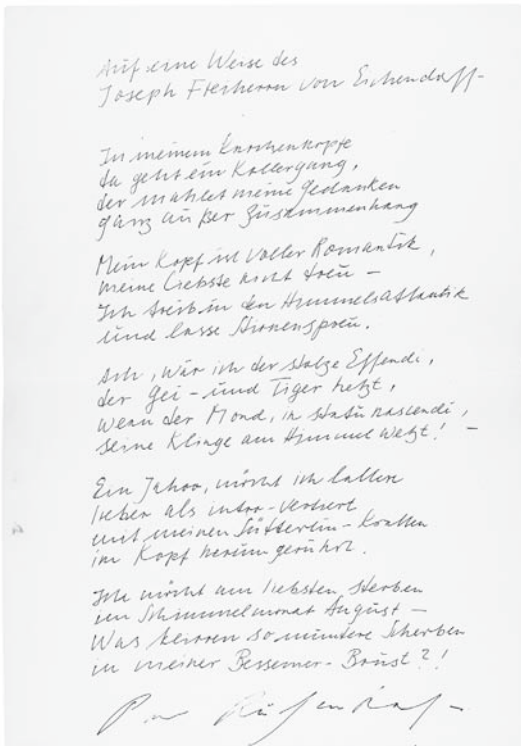 Auf eine Weise des
Joseph Freiherrn von Eichendorff
In meinem Knochenkopfe
da geht ein Kollergang,
der mahlet meine Gedanken
ganz außer Zusammenhang
Mein Kopf ist voller Romantik,
meine Liebste nicht treu –
Ich treib in den Himmelsatlantik
und lasse Stirnenspreu.
Ach, wär ich der stolze Effendi,
der Gei- und Tiger hetzt,
wenn der Mond, in statu nascendi,
seine Klinge am Himmel wetzt! –
Ein Jahoo, möcht ich lallen
lieber als intro-vertiert
mit meinen Sütterlin-Krallen
im Kopf herumgerührt.
Ich möcht am liebsten sterben
im Schimmelmonat August –
Was klirren so muntere Scherben
in meiner Bessemer-Brust?!